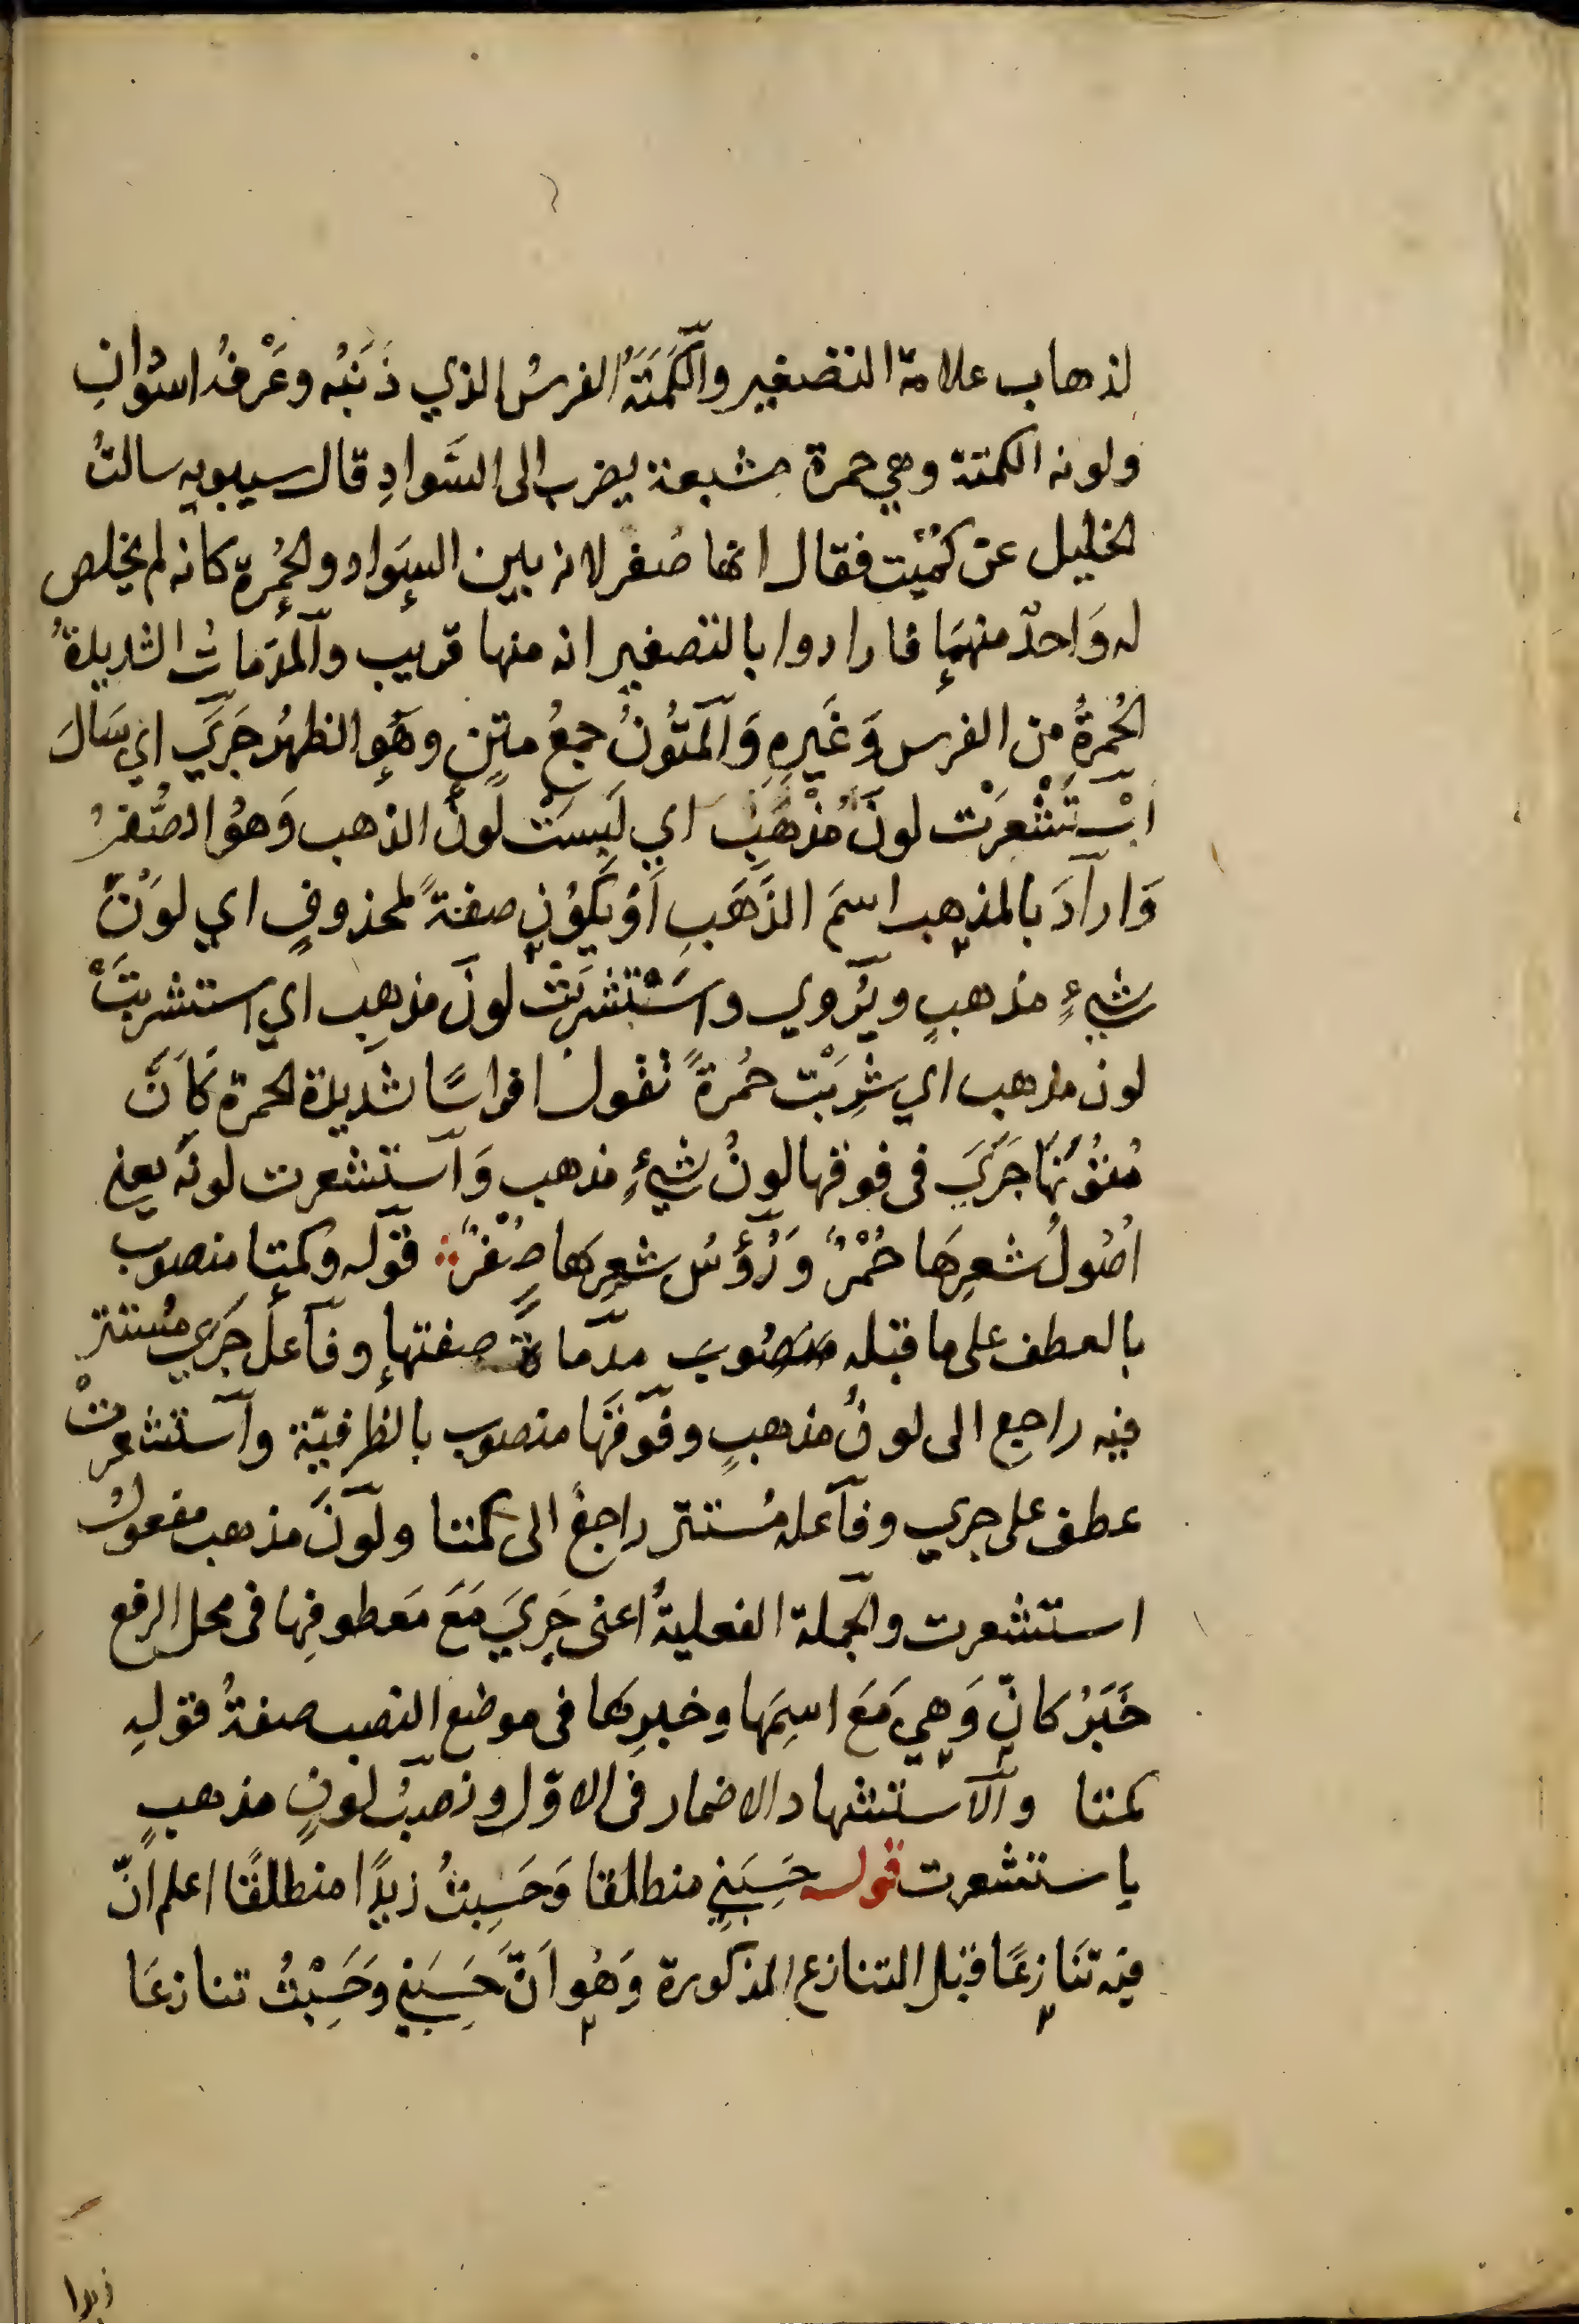 لذهاب علامة التصغير والكَمَتَةُ الفرسُ الذي ذَنَبُه وعَرْفُه اسوَدانِ
ولونه الكمتة وهي حمرة مشبعة يضرب الى السَّوادِ قال سيبويه سالتُ
الخليل عن كُمَيْت فقال انما صُغر لانه بين السَواد والحُمرةِ كانه لم يخلص
له وَاحدٌ منهمَا فارادوا بالتصغير انه منها قريب والمدَماتُ الشديدةُ
الحُمرةُ من الفرس وَغَيرهِ وَالمتُونُ جمعُ متنٍ وهَو الظهرُ جَرَي اي سَالَ
اسْتَشْعَرَتْ لونَ مُذْهَبٍ اي لَبِسَتْ لَونَ الذهب وَهوُ الصُّفرُ
وَارادَ بالمذهب اسمَ الذَهَبِ اَوْ يَكوُن صفةً لمحذوفٍ اي لوَنَ
شيءٍ مذهبٍ ويُروي واستَشْرَبَتْ لونَ مذهبٍ اي استشربَتْ
لون مذهب اي شَرِبَتْ حُمرةً تقول افراسًا شديدة الحمرة كَاَنَّ
مُتوُنَهَا جَرَيَ في فوقها لونُ شيءٍ مذهب وَاستشعرت لونَه يعني
اُصُولُ شعرِهَا حُمْرٌ وَرُؤسُ شعرِهَا صُفْرٌ قوله وكمتا منصوب
بالعطف على ما قبله منصُوبَ مدمّاةً صفتها وفاعل جَرَي مُستتر
فيه راجع الى لونُ مذهبٍ وفوقَهَا منصوب بالظرفيّة واستشعرتْ
عطف على جري وفاعله مُستتر راجعٌ الى كمتا ولونَ مذهب مفعولُ
استشعرت والجملة الفعليةُ اعنى جَرِيَ مَعَ مَعطوفِها فى محل الرفع
خَبَرُ كانّ وَهِيَ مَعَ اسِمَها وخبرِهَا فى موضع النصب صفةُ قولهِ
كمتا والاستشهاد الاضمار فى الاوّل ونصبُ لونٍ مذهبٍ
باستشعرت قوله حَسِبَنِي منطلقا وَحَسِبتُ زيدًا منطلقًا اعلم انّ
فيَه تَنَازعًا قبل التنازع المذكورة وَهُو اَنَّ حَسِبَنِي وحَسِبْتُ تنازعَا
زيدا